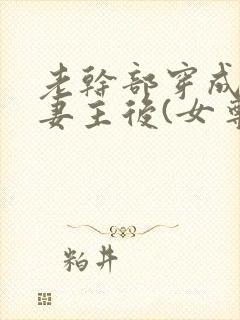 老幹部穿成
妻主後(女尊
粕井